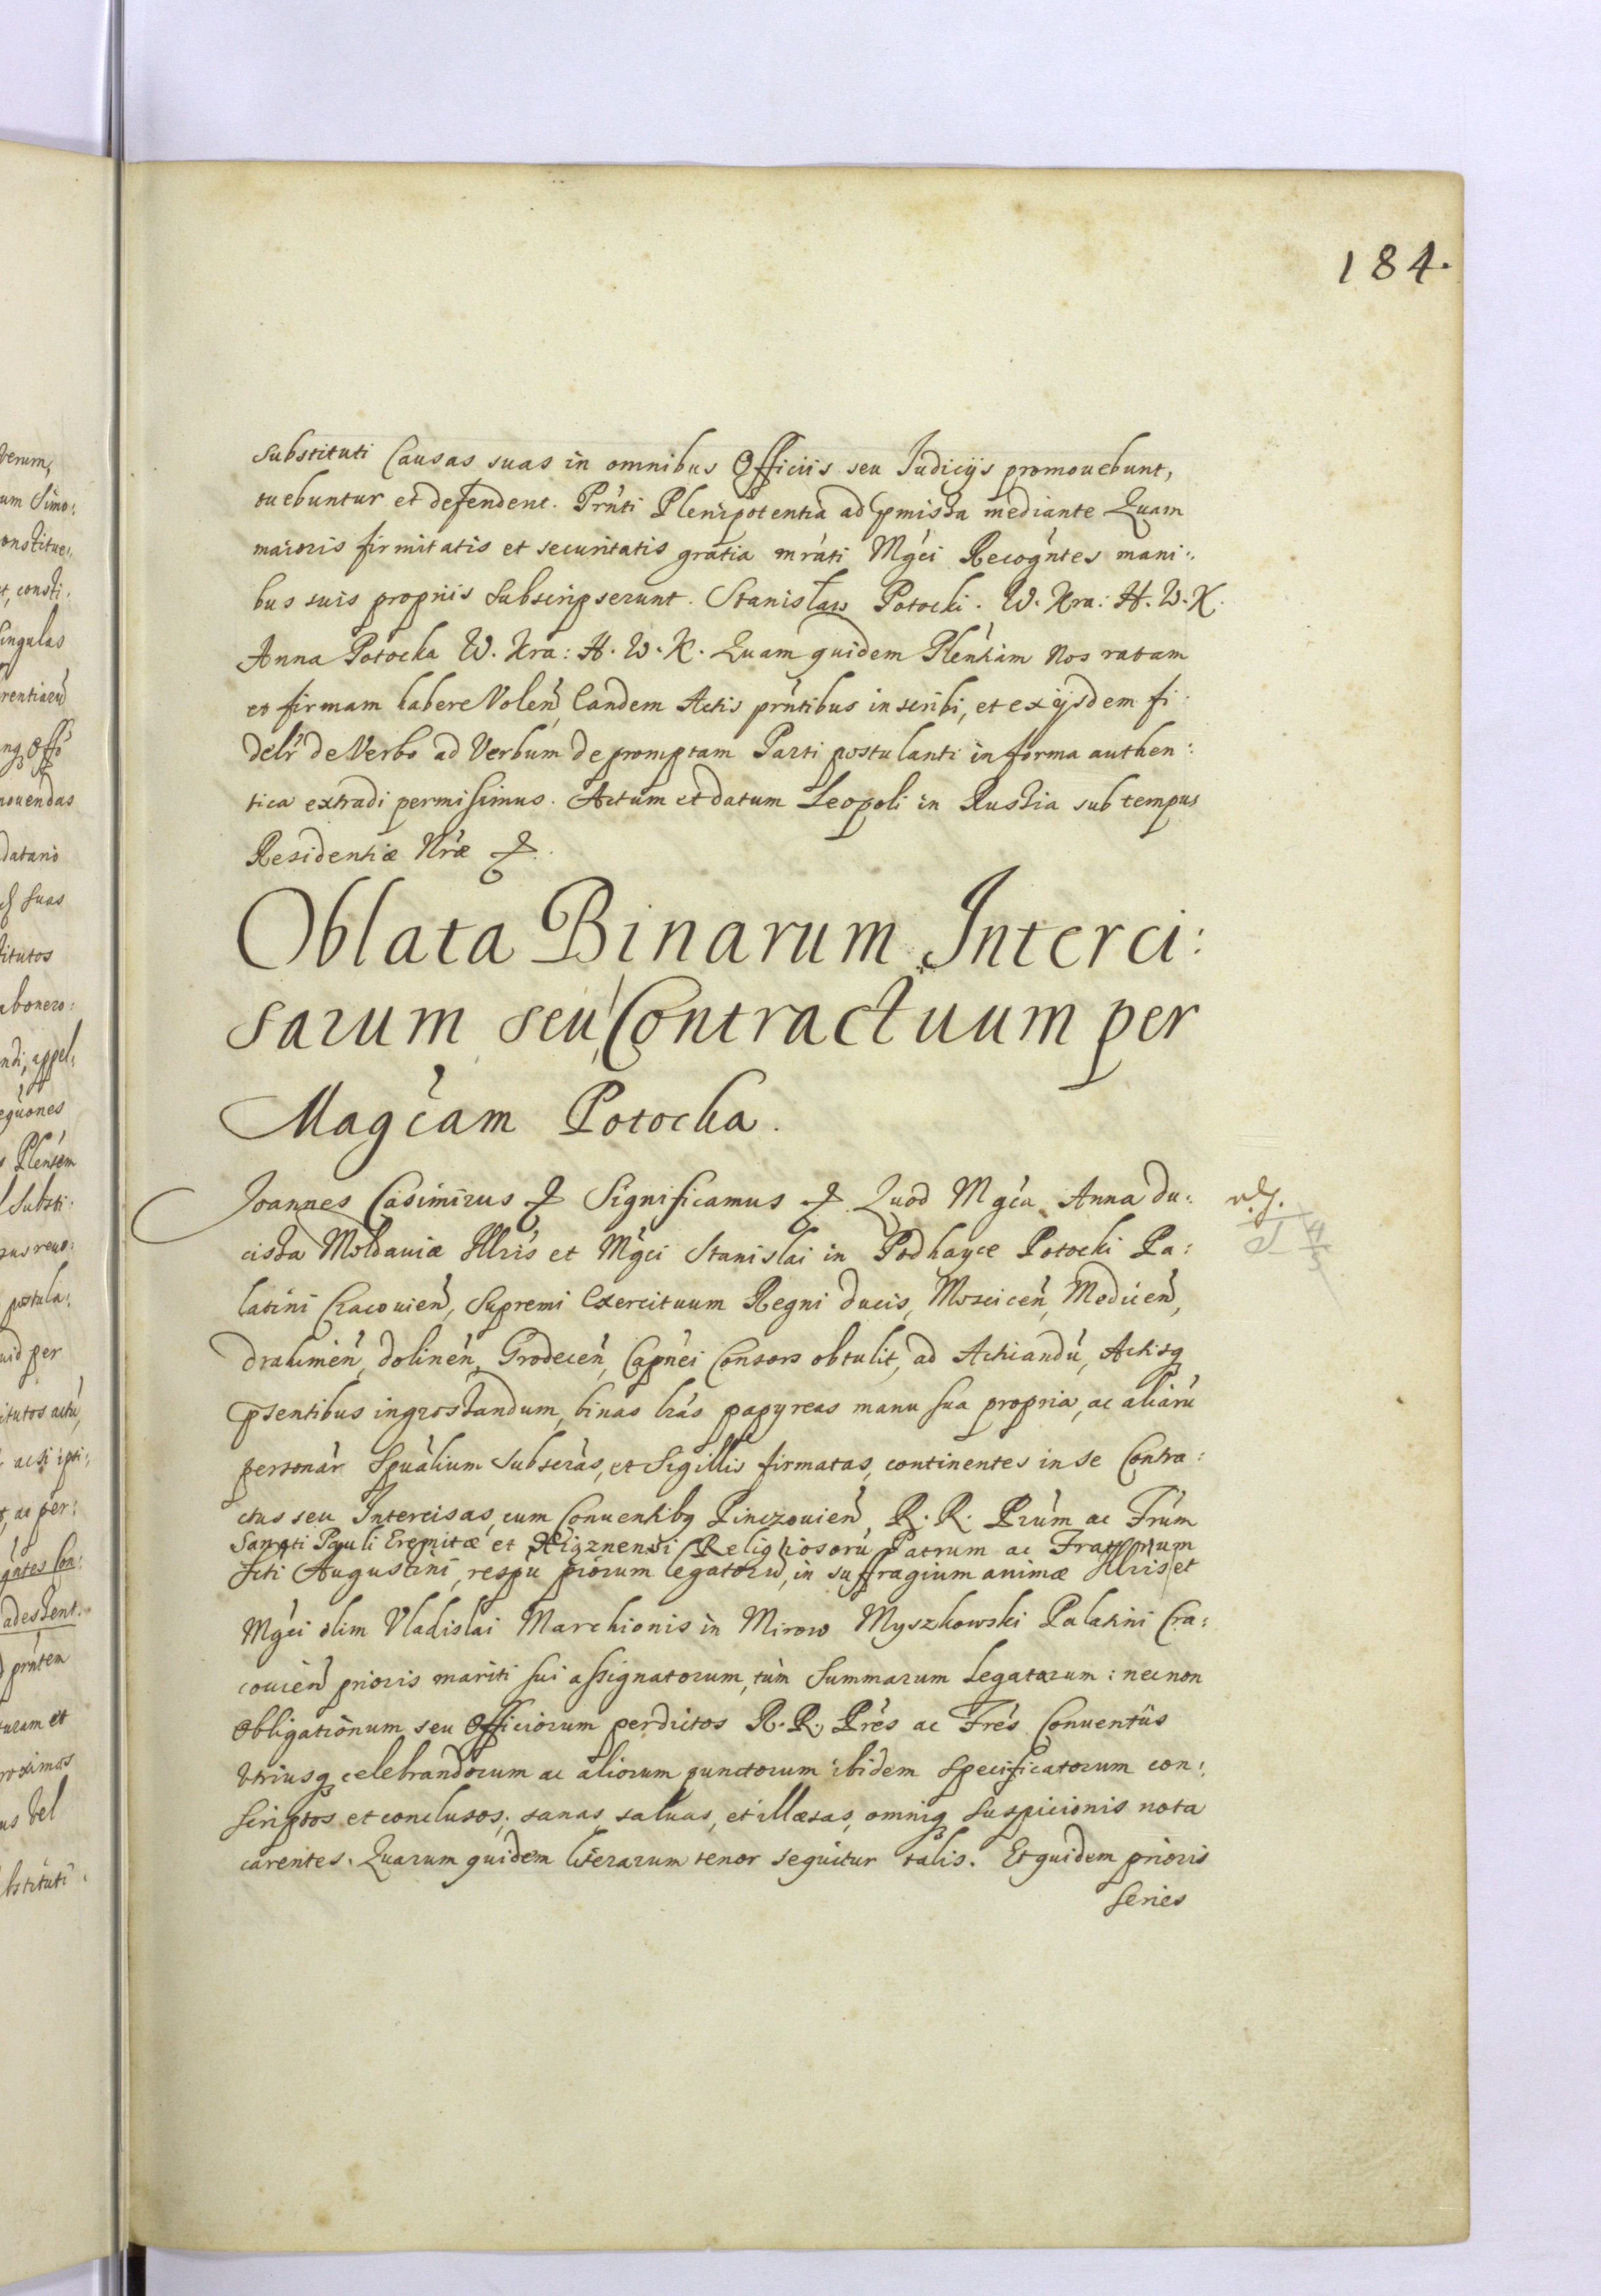 184.
substituti Causas suas in omnibus Officiis seu Iudicijs promouebunt,
tuebuntur et defendent. Prn̄ti Plenipotentia ad pmissa mediante Quam
maioris firmitatis et securitatis gratia mr̄ati Mgc̄i Recogn̄tes mani:
bus suis propriis subscripserunt. Stanisław Potocki. W. Kra: H. W. K.
Anna Potocka W. Kra: H. W. K. Quam quidem Plent̄iam Nos ratam
et firmam habere Volen̄, Eandem Actis prn̄tibus inscribi, et ex ijsdem fi:
delr̄ de Verbo ad Verbum depromptam Parti postulanti in forma authen:
tica extradi permisimus. Actum et datum Leopoli in Russia sub tempus
Residentiæ Nr̄æ
Oblata Binarum Interci:
sarum seu Contractuum per
Magc̄am Potocka.
Joannes Casimirus Significamus Quod Mgc̄a Anna du:
cissa Moldauiæ Illris et Mgc̄i Stanislai in Podhayce Potocki Pa:
latini Cracouien̄, Supremi Exercituum Regni ducis, Moscicen̄, Medicen̄,
drahimen̄, dolinen̄, Grodecen̄, Capn̄ei Consors obtulit, ad Acticandū, Actisq
psentibus ingrossandum, binas lrās papyreas manu sua propria, ac aliarū
personār Spuālium subscr̄as, et Sigillis firmatas, continentes in se Contra:
ctus seu Intercisas, cum Conuentibq Pinczouien̄, R. R. Prūm ac Frūm
Sancti Pauli Eremitæ et Xigznensi Religiosorū Patrum ac Fratrum
Scti Augustini, respū piorum legatorū, in suffragium animæ Illris et
Mgc̄i olim Vladislai Marchionis in Mirow Myszkowski Palatini Cra:
couien̄ prioris mariti sui assignatorum, tum Summarum Legatarum: necnon
Obligationum seu Officiorum perdictos R. R. Prēs ac Frēs Conuentūs
Vtriusq celebrandorum ac aliorum punctorum ibidem specificatorum con:
scriptos et conclusos, sanas, saluas, et illæsas, omniq suspicionis nota
carentes. Quarum quidem literarum tenor sequitur talis. Et quidem prioris
series